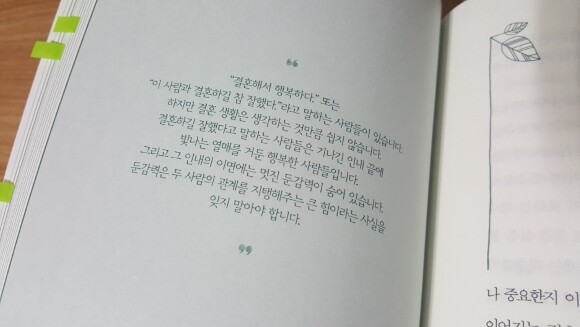 “
“결혼해서 행복하다.” 또는
“이 사람과 결혼하길 참 잘했다.”라고 말하는 사람들이 있습니다.
하지만 결혼 생활은 생각하는 것만큼 쉽지 않습니다.
결혼하길 잘했다고 말하는 사람들은 기나긴 인내 끝에
빛나는 열매를 거둔 행복한 사람들입니다.
그리고 그 인내의 이면에는 멋진 둔감력이 숨어 있습니다.
둔감력은 두 사람의 관계를 지탱해주는 큰 힘이라는 사실을
잊지 말아야 합니다.
”
나 중요한지 이